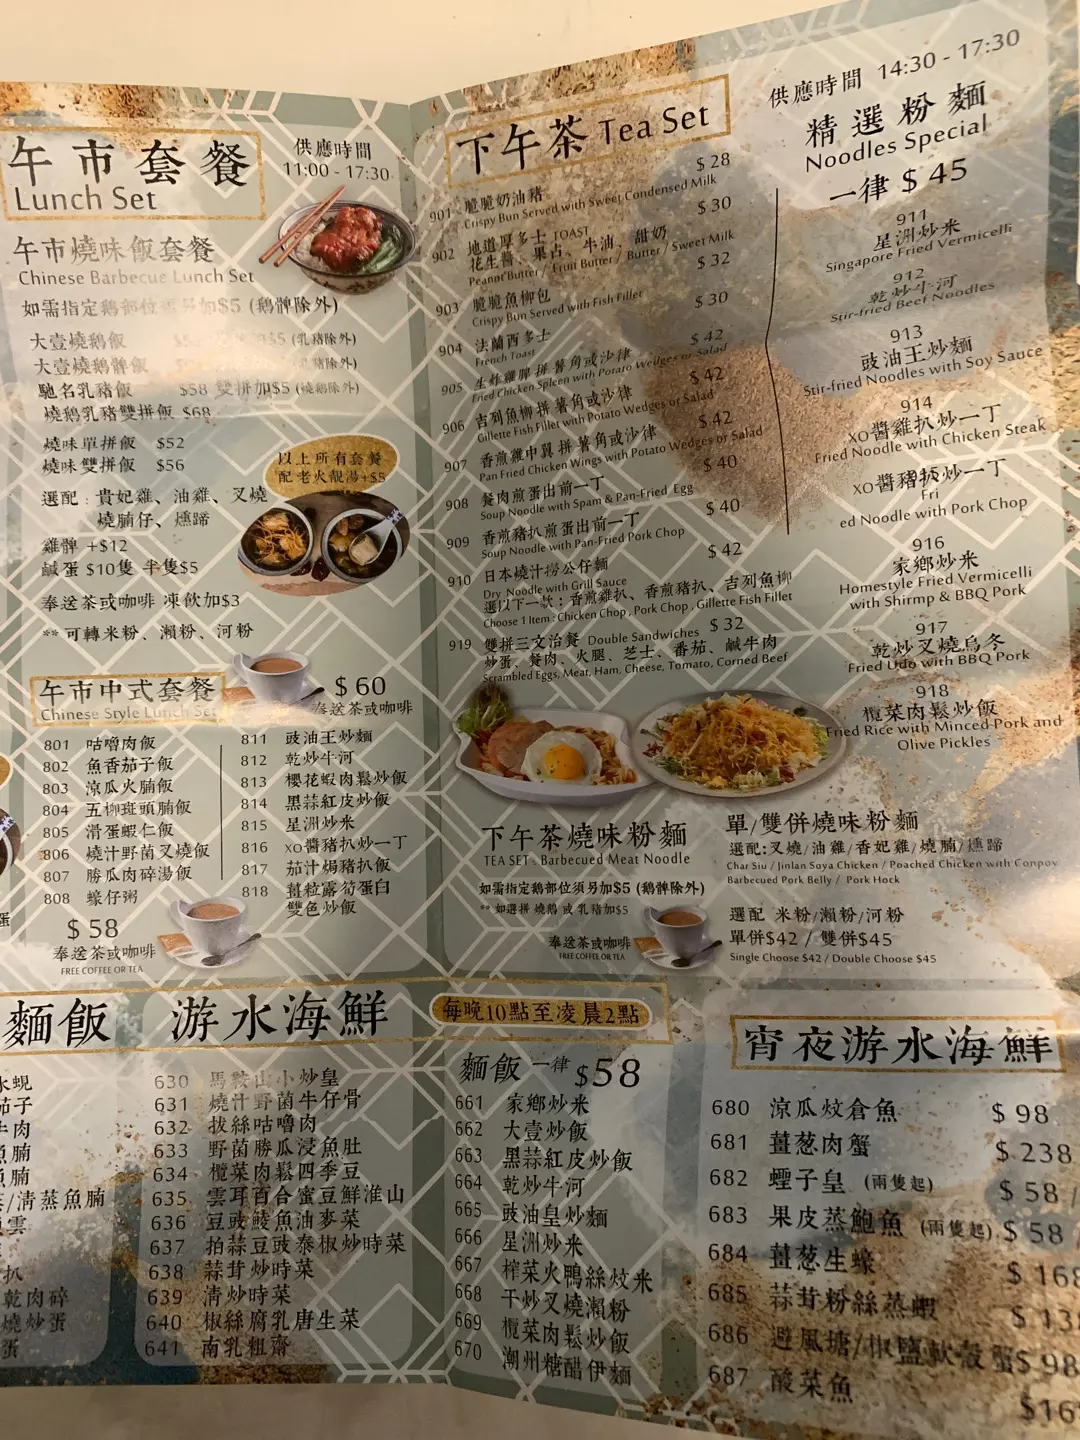 午市套餐
Lunch Set
供應時間
11:00 - 17:30
午市燒味飯套餐
Chinese Barbecue Lunch Set
如需指定鵝部位須另加$5 (鵝髀除外)
大壹燒鵝飯
大壹燒鵝髀飯
馳名乳豬飯 $58 雙拼加$5 (燒鵝除外)
燒鵝乳豬雙拼飯 $68
燒味單拼飯 $52
燒味雙拼飯 $56
以上所有套餐
配老火靚湯+$5
選配：貴妃雞、油雞、叉燒
燒腩仔、燻蹄
雞髀 +$12
鹹蛋 $10隻 半隻$5
奉送茶或咖啡 凍飲加$3
** 可轉米粉、瀨粉、河粉
午市中式套餐
Chinese Style Lunch Set
$ 60
奉送茶或咖啡
801 咕嚕肉飯
802 魚香茄子飯
803 涼瓜火腩飯
804 五柳斑頭腩飯
805 滑蛋蝦仁飯
806 燒汁野菌叉燒飯
807 勝瓜肉碎湯飯
808 蠔仔粥
$ 58
奉送茶或咖啡
FREE COFFEE OR TEA
811 豉油王炒麵
812 乾炒牛河
813 櫻花蝦肉鬆炒飯
814 黑蒜紅皮炒飯
815 星洲炒米
816 XO醬豬扒炒一丁
817 茄汁焗豬扒飯
818 薑粒露筍蛋白
雙色炒飯
下午茶 Tea Set
901 脆脆奶油豬 $ 28
Crispy Bun Served with Sweet Condensed Milk
902 地道厚多士 TOAST $ 30
花生醬、果占、牛油、甜奶
Peanot Butter / Fruit Butter / Butter / Sweet Milk
903 脆脆魚柳包 $ 32
Crispy Bun Served with Fish Fillet
904 法蘭西多士 $ 30
French Toast
905 生炸雞髀拼薯角或沙律 $ 42
Fried Chicken Spleen with Potato Wedges or Salad
906 吉列魚柳拼薯角或沙律 $ 42
Gillette Fish Fillet with Potato Wedges or Salad
907 香煎雞中翼拼薯角或沙律 $ 42
Pan Fried Chicken Wings with Potato Wedges or Salad
908 餐肉煎蛋出前一丁 $ 40
Soup Noodle with Spam & Pan-Fried Egg
909 香煎豬扒煎蛋出前一丁 $ 40
Soup Noodle with Pan-Fried Pork Chop
910 日本燒汁撈公仔麵 $ 42
Dry Noodle with Grill Sauce
選以下一款：香煎雞扒、香煎豬扒、吉列魚柳
Choose 1 Item : Chicken Chop , Pork Chop , Gillette Fish Fillet
919 雙拼三文治餐 Double Sandwiches $ 32
炒蛋、餐肉、火腿、芝士、番茄、鹹牛肉
Scrambled Eggs, Meat, Ham, Cheese, Tomato, Corned Beef
供應時間 14:30 - 17:30
精選粉麵
Noodles Special
一律 $ 45
911
星洲炒米
Singapore Fried Vermicelli
912
乾炒牛河
Stir-fried Beef Noodles
913
豉油王炒麵
Stir-fried Noodles with Soy Sauce
914
XO醬雞扒炒一丁
Fried Noodle with Chicken Steak
XO醬豬扒炒一丁
Fri
ed Noodle with Pork Chop
916
家鄉炒米
Homestyle Fried Vermicelli
with Shirmp & BBQ Pork
917
乾炒叉燒烏冬
Fried Udo with BBQ Pork
918
欖菜肉鬆炒飯
Fried Rice with Minced Pork and
Olive Pickles
下午茶燒味粉麵
TEA SET - Barbecued Meat Noodle
如需指定鵝部位須另加$5 (鵝髀除外)
** 如選拼 燒鵝 或 乳豬加$5
奉送茶或咖啡
FREE COFFEE OR TEA
單/雙併燒味粉麵
選配:叉燒/油雞/香妃雞/燒腩/燻蹄
Char Siu / Jinlan Soya Chicken / Poached Chicken with Conpoy
Barbecued Pork Belly / Pork Hock
選配 米粉/瀨粉/河粉
單併$42 / 雙併$45
Single Choose $42 / Double Choose $45
麵飯
茄子
牛肉
魚腩
魚腩
/清蒸魚腩
雲
扒
乾肉碎
燒炒蛋
蛋
游水海鮮
630 馬鞍山小炒皇
631 燒汁野菌牛仔骨
632 拔絲咕嚕肉
633 野菌勝瓜浸魚肚
634 欖菜肉鬆四季豆
635 雲耳百合蜜豆鮮淮山
636 豆豉鯪魚油麥菜
637 拍蒜豆豉泰椒炒時菜
638 蒜茸炒時菜
639 清炒時菜
640 椒絲腐乳唐生菜
641 南乳粗齋
每晚10點至凌晨2點
麵飯 一律 $58
661 家鄉炒米
662 大壹炒飯
663 黑蒜紅皮炒飯
664 乾炒牛河
665 豉油皇炒麵
666 星洲炒米
667 榨菜火鴨絲炆米
668 干炒叉燒瀨粉
669 欖菜肉鬆炒飯
670 潮州糖醋伊麵
宵夜游水海鮮
680 涼瓜炆倉魚 $ 98
681 薑葱肉蟹 $ 238
682 蟶子皇 (兩隻起) $ 58 /
683 果皮蒸鮑魚 (兩隻起) $ 58 /
684 薑葱生蠔 $ 168
685 蒜茸粉絲蒸蝦
686 避風塘/椒鹽軟殼蟹 $ 98
687 酸菜魚